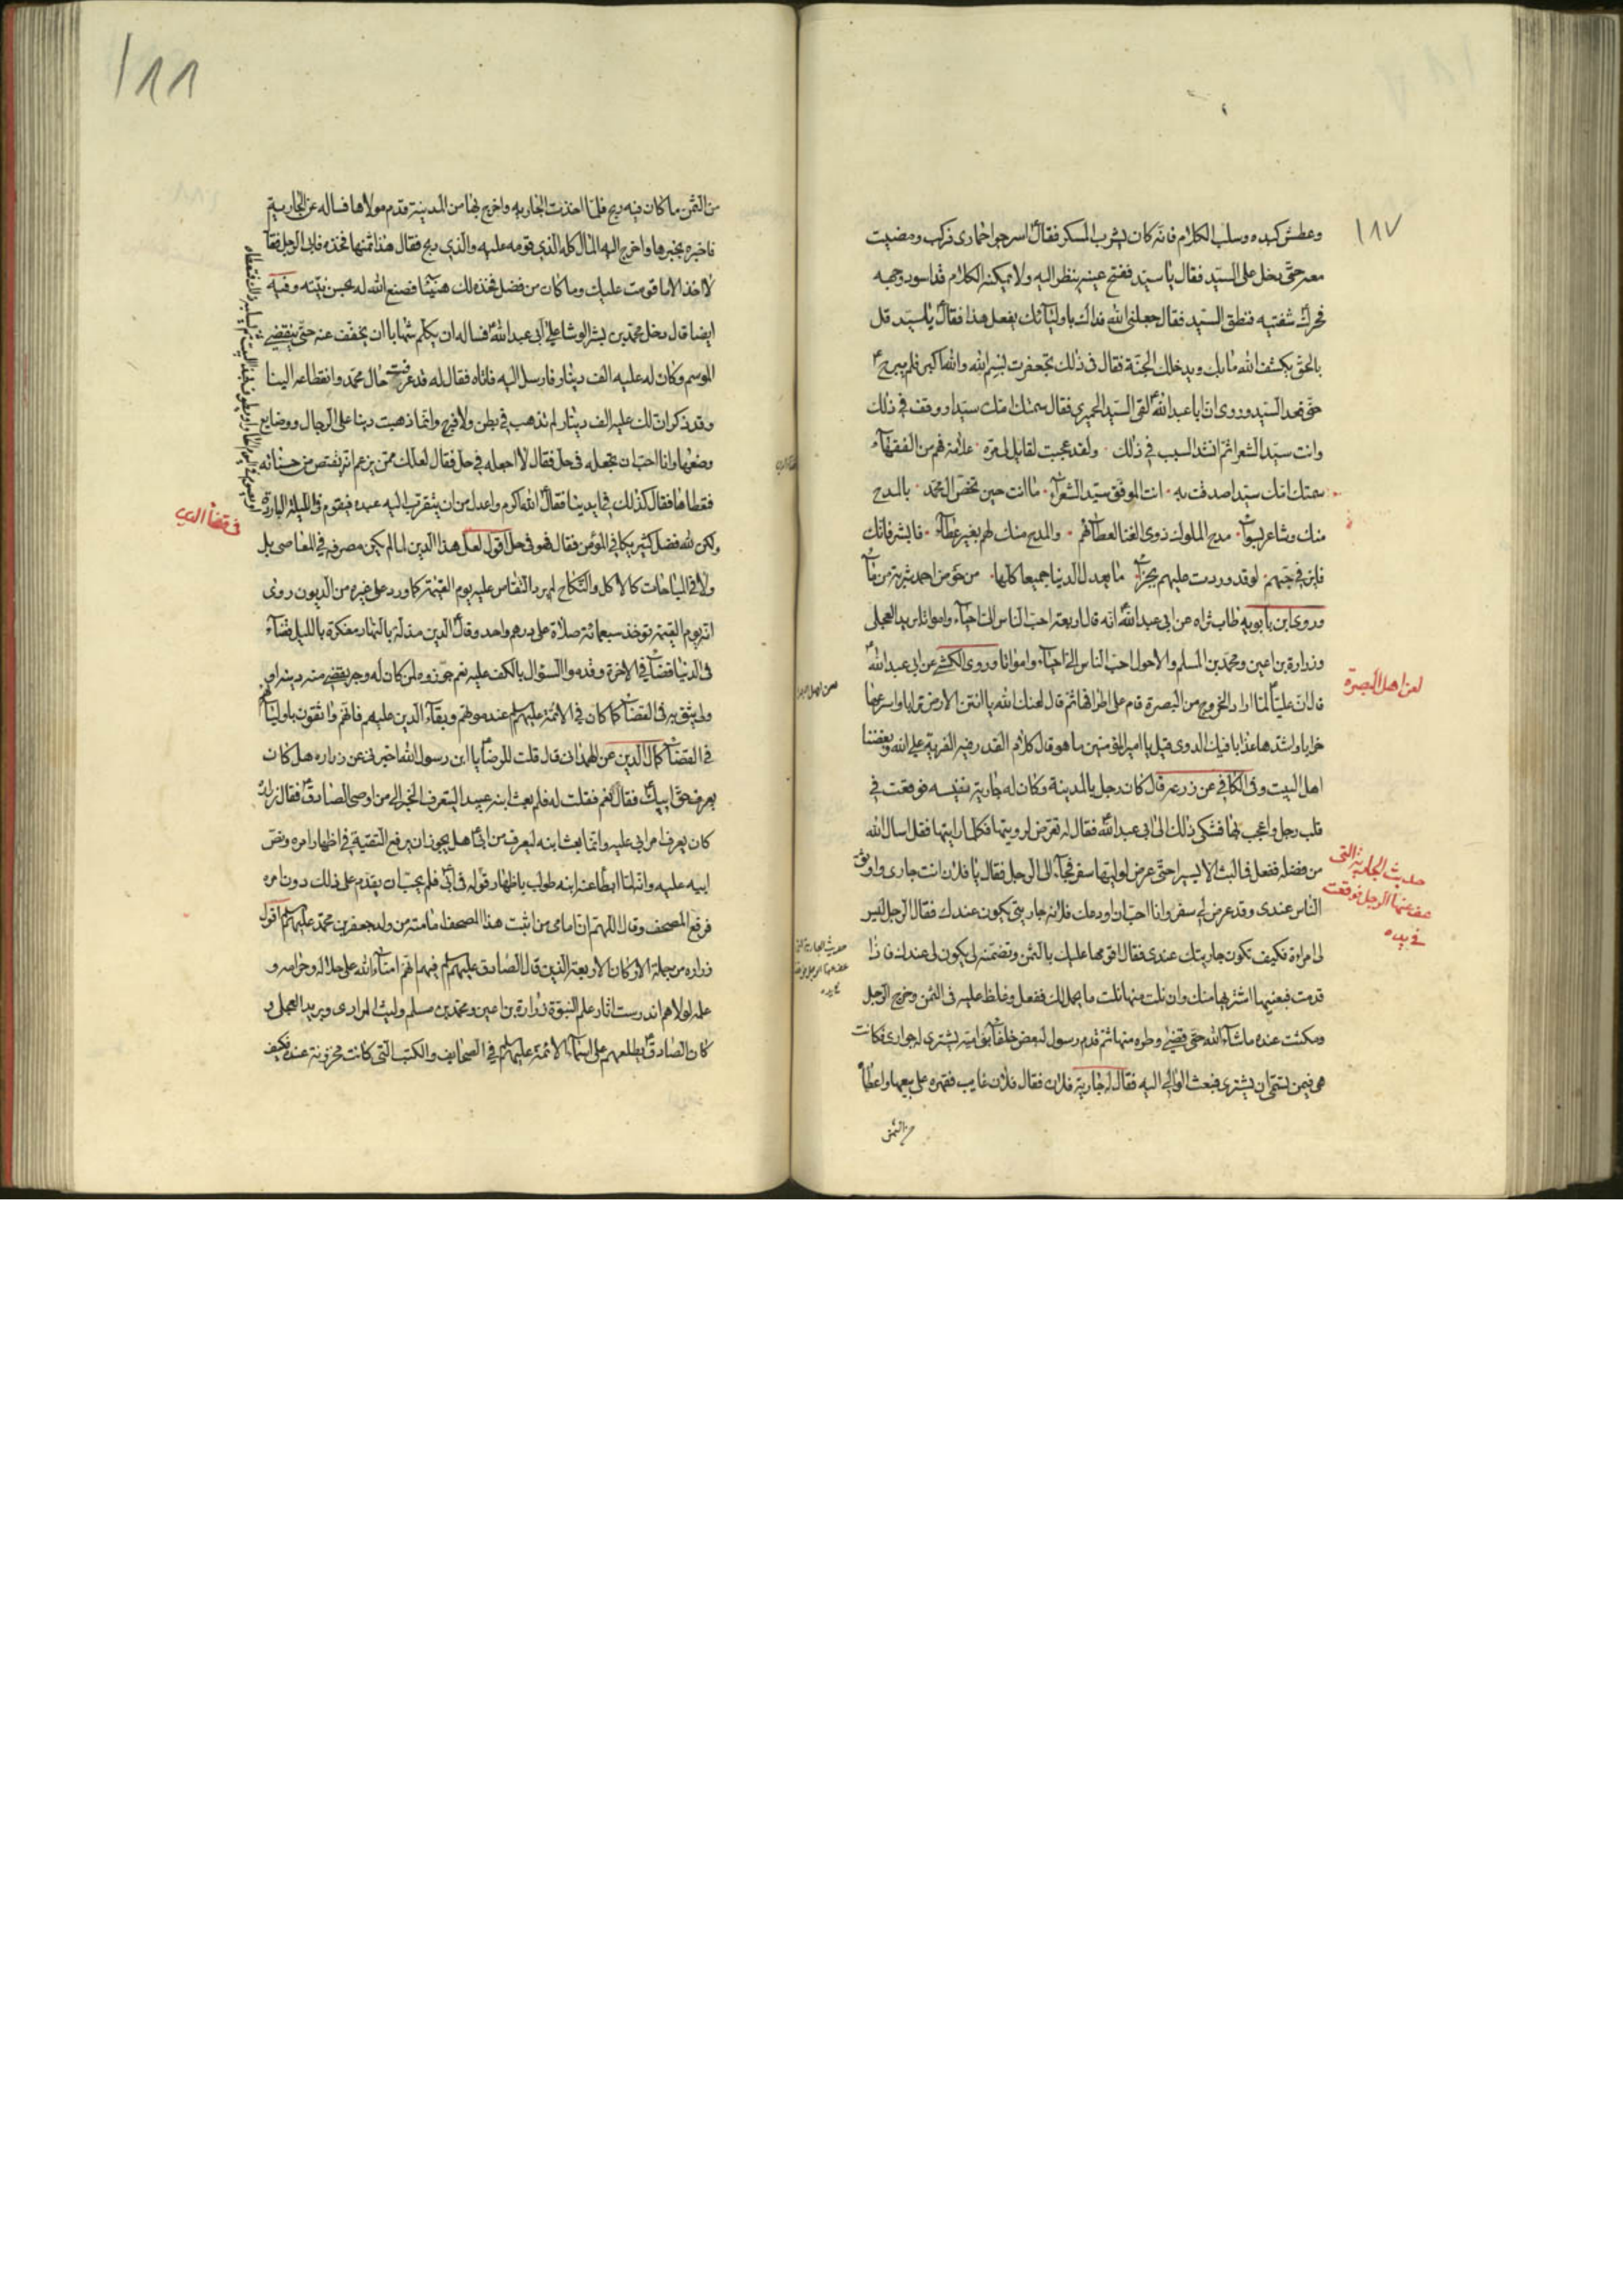 ١٨٧
وعطش كبده وسلب الكلام فانه كان يشرب المسكر فقال اسرجوا حماری فركب ومضيت
معه حتى دخل على السيد فقال يا سيد ففتح عينيه ينظر اليه ولا يمكنه الكلام قد اسود وجهه
فحرك شفتيه فنطق السيد فقال جعلنی الله فداك باوليائك يفعل هذا فقال يا سيد قل
بالحق يكشف الله ما بك ويدخلك الجنة فقال فی ذلك تجعفرت بسم الله والله اكبر فلم يبرح
حتى قعد السيد وروی ان ابا عبد الله لقی السيد الحميری فقال سمتك امك سيدا ووفقت فی ذلك
وانت سيد الشعرا ثم انشد السيد فی ذلك ولقد عجبت لقايل لی مرة علامة فهم من الفقهاء
سمتك امك سيدا صدقت به انت الموفق سيد الشعراء ما انت حين تخص ال محمد بالمدح
منك وشاعر بسواء مدح الملوك ذوی الغنا لعطائهم والمدح منك لهم بغير عطاء فابشر فانك
فايز فی حبهم لو قد وردت عليهم بجزاء ما يعدل الدنيا جميعا كلها من حوض احمد شربة من ماء
وروی ابن بابويه طاب ثراه عن ابی عبد الله انه قال اربعة احب الناس الی احياء وامواتا بريد العجلی
وزرارة بن اعين ومحمد بن المسلم والاحول احب الناس الی احياء وامواتا وروی الكشی عن ابی عبد الله
لعن اهل البصرة
قال ان عليا لما اراد الخروج من البصرة قام على اطرافها ثم قال لعنك الله يا انتن الارض ترابا واسرعها
خرابا واشدها عذابا فيك الدوی قيل يا امير المؤمنين ما هو قال كلام القدر فيه الفرية على الله وبغضنا
اهل البيت وفی الكافی عن زرعه قال كان رجل بالمدينة وكان له جارية نفيسه فوقعت فی
قلب رجل واعجب بها فشكى ذلك الى ابی عبد الله فقال له تعرض لرويتها فكلما رايتها فقل اسال الله
حديث الجارية التی
عف عنها الرجل فوقعت
فی يده
من فضله ففعل فما لبث الا يسيرا حتى عرض لوليها سفر فجاء الى الرجل فقال يا فلان انت جاری واوثق
الناس عندی وقد عرض لی سفر وانا احب ان اودعك فلانه جاريتی يكون عندك فقال الرجل ليس
لی امراة فكيف تكون جاريتك عندی فقال اقومها عليك بالثمن وتضمنه لی يكون لی عندك فاذا
قدمت فبعنيها اشتريها منك وان نلت منها نلت ما يحل لك ففعل وغلظ عليه فی الثمن وخرج الرجل
ومكثت عنده ما شاء الله حتى قضى وطره منها ثم قدم رسول لبعض خلفاء بنی امية يشتری له جواری فكانت
هی فيمن سمی ان يشتری فبعث الوالی اليه فقال له جارية فلان فقال فلان غايب فقهره على بيعها واعطاه
من الثمن
١٨٨
من الثمن ما كان فيه ربح فلما اخذت الجاريه واخرج بها من المدينة قدم مولاها فساله عن الجارية
فاخبره بخبرها واخرج اليه المال كله الذی قومه عليه والذی ربح فقال هذا ثمنها فخذه فابى الرجل فقال
لا اخذ الا ما قومت عليك وما كان من فضل فخذه لك هنيئا فصنع الله له بحسن نيته وفيه
ايضا قال دخل محمد بن بشر الوشا على ابی عبد الله فساله ان يكلم شهابا ان يخفف عنه حتى ينقضی
الموسم وكان له عليه الف دينار فارسل اليه فاتاه فقال له قد عرفت حال محمد وانقطاعه الينا
وقد ذكر ان لك عليه الف دينار لم تذهب فی بطن ولا فرج وانما ذهبت دينا على الرجال ووضايع
وضعها وانا احب ان تجعله فی حل فقال لا اجعله فی حل فقال لعلك ممن يزعم انه يقتص من حسناته
فی قضا الدين
فتعطاها فقال كذلك فی ايدينا فقال الله اكرم واعدل من ان يتقرب اليه عبده فيقوم فی الليلة الباردة
ولكن لله فضل كثير يكافی المؤمن فقال فهو فی حل اقول لعل هذا الدين لما لم يكن مصرفه فی المعاصی بل
ولا فی المباحات كالاكل والنكاح لم يرد التقاس عليه يوم القيمة كما ورد على غيره من الديون روی
انه يوم القيمة توخذ سبعمائة صلاة على درهم واحد وقال الدين مذلة بالنهار مفكرة بالليل قضاء
فی الدنيا قضاء فی الاخرة
فی القضاء كمال الدين عن الهمدانی قال قلت للرضا يا ابن رسول الله اخبرنی عن زراره هل كان
يعرف حق ابيك فقال نعم فقلت له فلم بعث ابنه عبيد اليتعرف الخبر الی من اوصى الصادق فقال زرارة
كان يعرف امر ابی عليه وانما بعث ابنه ليعرف من ابی هل يجوز ان يرفع التقية فی اظهار امره ونص
ابيه عليه وانه لما ابطا عنه ابنه طولب باظهار قوله فی ابی فلم يحب ان يقدم على ذلك دون امره
فرفع المصحف وقال اللهم ان امامی من اثبت هذا المصحف امامته من ولد جعفر بن محمد عليهم السلم اقول
زراره من جملة الاركان الاربعة الذين قال الصادق عليه السلم فيهم انهم امناء الله على حلاله وحرامه و
علمه لولاهم اندرست اثار علم النبوة زرارة بن اعين ومحمد بن مسلم وليث المرادی وبريد العجلی و
كان الصادق يطلعهم على اسماء الائمة عليهم السلم فی الصحايف والكتب التی كانت مخزونة عنده فكيف